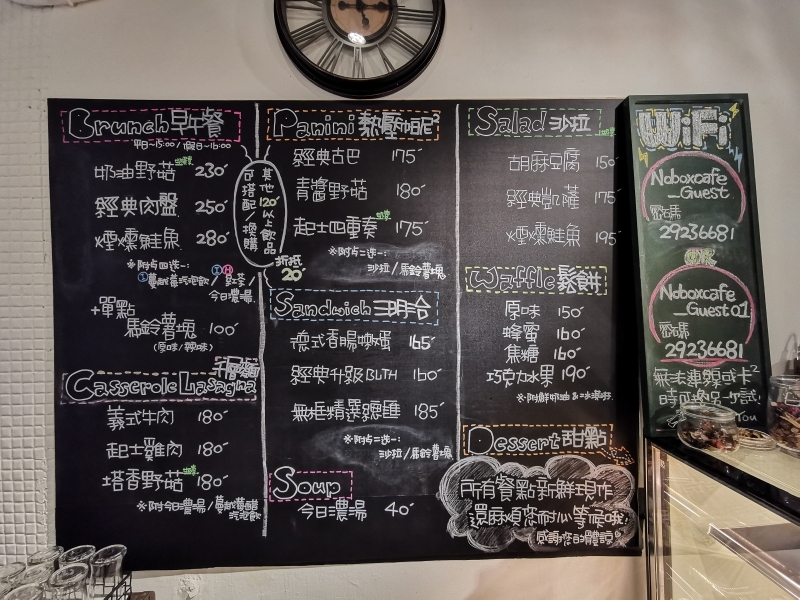 Brunch 早午餐
平日~15:00 / 假日~16:00
奶油野菇 230
經典肉盤 250
煙燻鮭魚 280
※附点四選一:
蔓越莓汽泡飲 / 紅茶 /
今日濃湯
+單點
馬鈴薯塊 100
(原味/辣味)
千層麵
Casserole Lasagna
義式牛肉 180
起士雞肉 180
塔香野菇 180
※附今日濃湯 / 蔓越莓醋
汽泡飲
其他120以上飲品
可搭配/換購
折抵
20
Panini 熱壓帕尼
經典古巴 175
青醬野菇 180
起士四重奏 175
※附点二選一:
沙拉/馬鈴薯塊
Sandwich 三明治
德式香腸嫩蛋 165
經典升級BLTH 160
無框精選總匯 185
※附点二選一:
沙拉/馬鈴薯塊
Soup
今日濃湯 40
Salad 沙拉
胡麻豆腐 150
經典凱薩 175
煙燻鮭魚 195
Waffle 鬆餅
原味 150
蜂蜜 160
焦糖 160
巧克力水果 190
Dessert 甜點
所有餐點新鮮現作
還麻煩您耐心等候哦!
感謝您的體諒
WiFi
Noboxcafe
_Guest
密碼
29236681
or
Noboxcafe
_Guest01
密碼
29236681
無法連線或卡卡
時可換另一試!
You